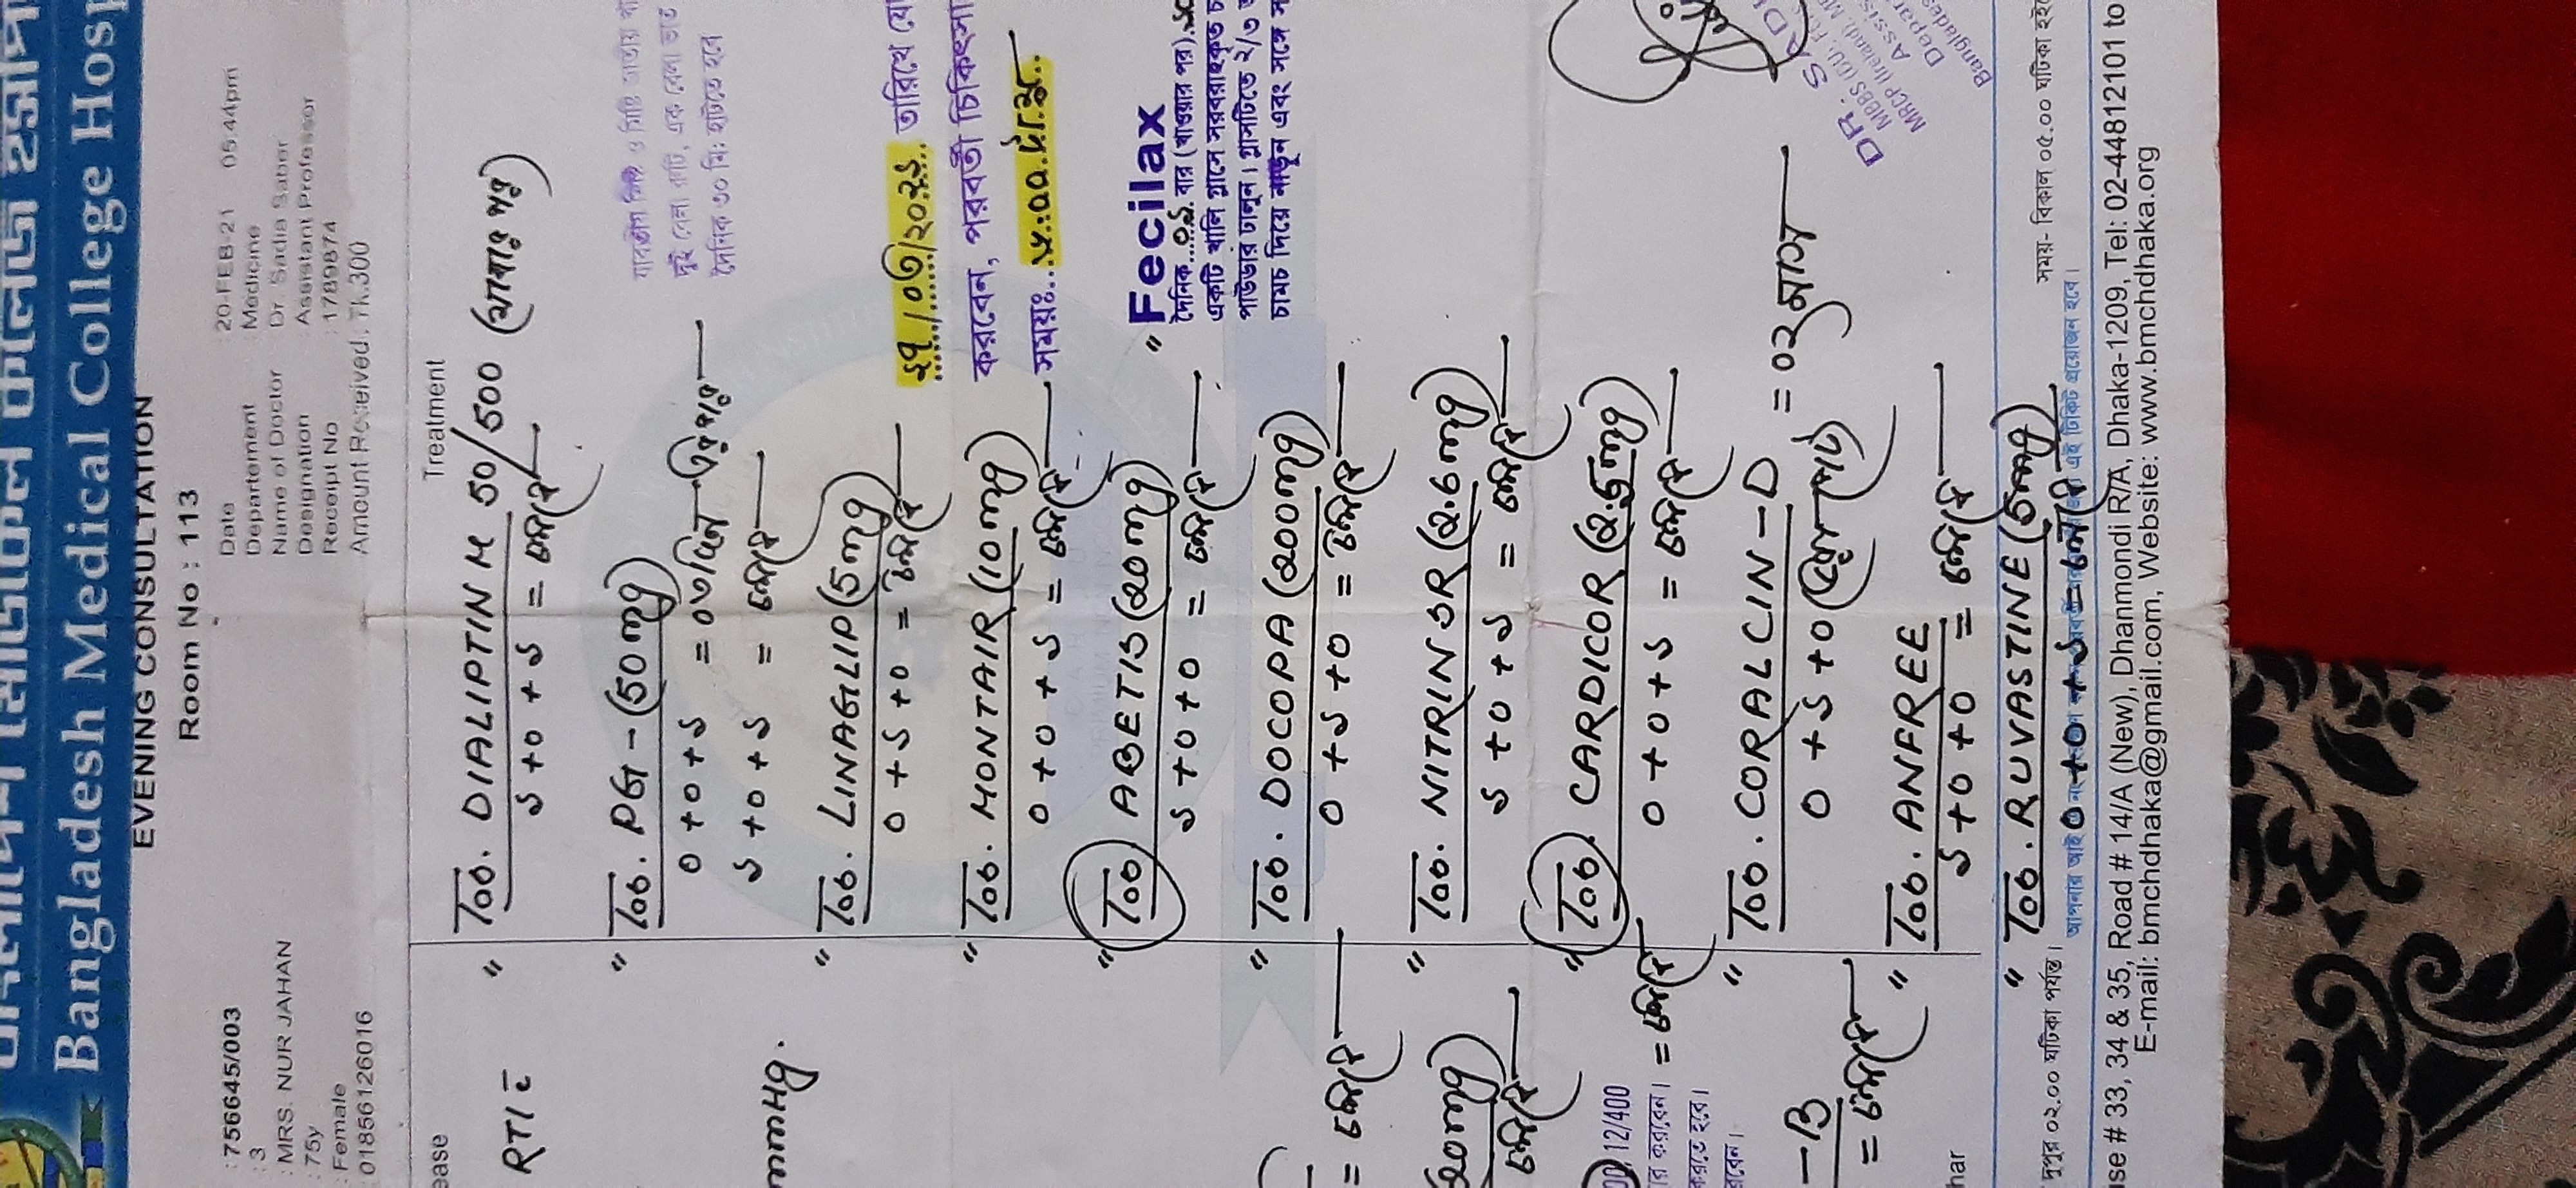 Bangladesh Medical College Hosp
EVENING CONSULTATION
Room No : 113
: 756645/003
: 3
: MRS. NUR JAHAN
: 75y
: Female
: 01856126016
Date : 20-FEB-21 05:44pm
Departement : Medicine
Name of Doctor : Dr. Sadia Saber
Designation : Assistant Professor
Receipt No : 1789874
Amount Received : Tk.300
ease
Treatment
RTI c̄
mmHg.
" Tab. DIALIPTIN M 50/500 (খাবার পর)
১ + ০ + ১ = চলবে
" Tab. PG - (50mg)
০ + ০ + ১ = ০৩ দিন তারপর
১ + ০ + ১ = চলবে
দৈনিক ৩০ মি: হাটতে হবে
" Tab. LINAGLIP (5mg)
০ + ১ + ০ = চলবে
তারিখে
" Tab. MONTAIR (10mg)
০ + ০ + ১ = চলবে
করবেন, পরবর্তী চিকিৎসা
সময়ঃ
" Tab. ABETIS (20mg)
১ + ০ + ০ = চলবে
" Fecilax
দৈনিক ০১ বার (খাওয়ার পর)
একটি খালি গ্লাসে সরবরাহকৃত
পাউডার ঢালুন। গ্লাসটিতে ২/৩
চামচ দিয়ে নাড়ুন এবং সঙ্গে
" Tab. DOCOPA (200mg)
০ + ১ + ০ = চলবে
= চলবে
" Tab. NITRIN SR (2.6mg)
১ + ০ + ১ = চলবে
20mg)
চলবে
" Tab. CARDICOR (2.5mg)
০ + ০ + ১ = চলবে
12/400
করবেন। = চলবে
করতে হবে।
" Tab. CORALCIN - D
০ + ১ + ০ (ভরা পেটে) = ০২ মাস
- B
= চলবে
" Tab. ANFREE
১ + ০ + ০ = চলবে
" Tab. RUVASTINE (5mg)
০ + ০ + ১ = চলবে
DR. SADI
MBBS (DU),
MRCP (Ireland),
Assis
Depar
Bangladesh
har
দুপুর ০২.০০ ঘটিকা পর্যন্ত।
সময়- বিকাল ০৫.০০ ঘটিকা হইতে
এই টিকিট প্রয়োজন হবে।
use # 33, 34 & 35, Road # 14/A (New), Dhanmondi R/A, Dhaka-1209, Tel: 02-44812101 to
E-mail: bmchdhaka@gmail.com, Website: www.bmchdhaka.org